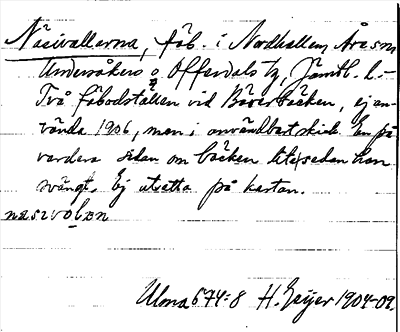 Näsvallarna, fäb. i Nordhallen, Åre sn
Undersåkers o Offerdals tg, Jämtl. l.-
Två fäbodställen vid Bäverbäcken, ej an-
vända 1906, men i användbart skick. En på
vardera sidan om bäcken
svängt. Ej utsatta på kartan.
Ulma 574:8 H. Geijer 1904-09.